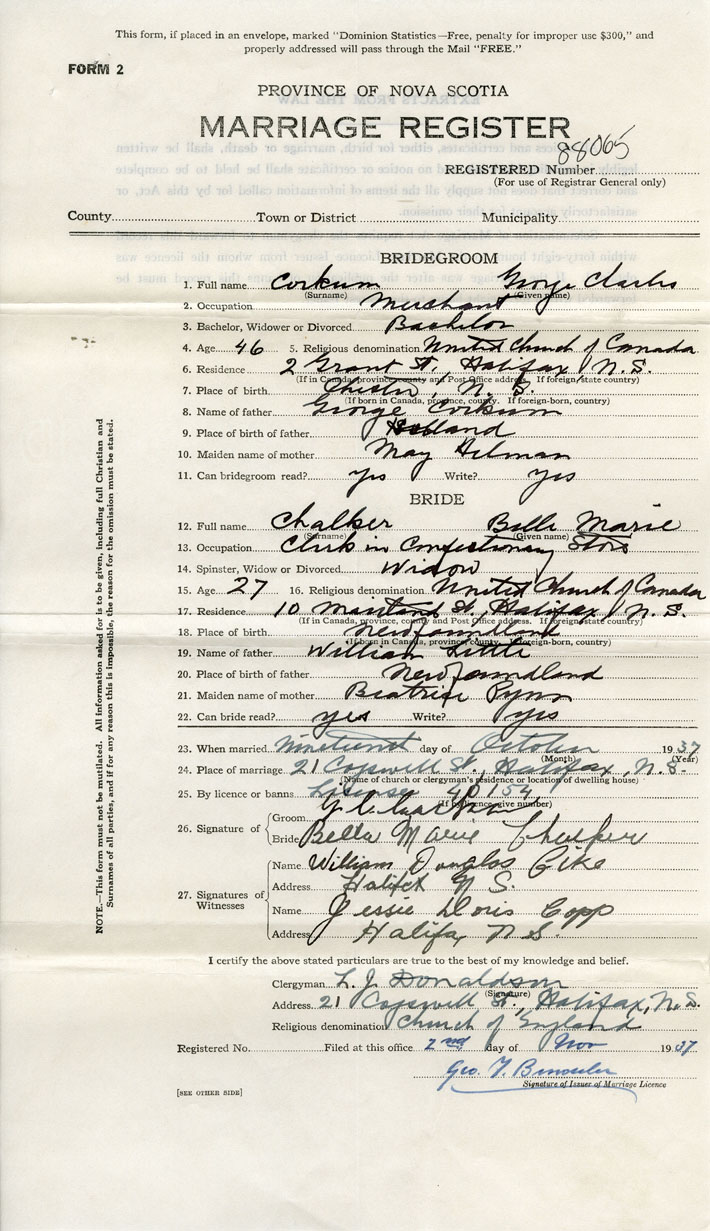 This form, if placed in an envelope, marked "Dominion Statistics—Free, penalty for improper use $300," and
properly addressed will pass through the Mail "FREE."
FORM 2
PROVINCE OF NOVA SCOTIA
MARRIAGE REGISTER
88065
REGISTERED Number
(For use of Registrar General only)
County Town or District Municipality
BRIDEGROOM
1. Full name Corkum George Charles
(Surname) (Given name)
2. Occupation Merchant
3. Bachelor, Widower or Divorced Bachelor
4. Age 46 5. Religious denomination United Church of Canada
6. Residence 2 Grant St, Halifax, N.S.
(If in Canada, province, county and Post Office address. If foreign, state country)
7. Place of birth Chester, N.S.
(If born in Canada, province, county. If foreign-born, country)
8. Name of father George Corkum
9. Place of birth of father Holland
10. Maiden name of mother May
11. Can bridegroom read? yes Write? yes
BRIDE
12. Full name Chalker Belle Marie
(Surname) (Given name)
13. Occupation Clerk in Confectionary Store
14. Spinster, Widow or Divorced Widow
15. Age 27 16. Religious denomination United Church of Canada
17. Residence 10 Maitland St, Halifax, N.S.
(If in Canada, province, county and Post Office address. If foreign, state country)
18. Place of birth Newfoundland
(If born in Canada, province, county. If foreign-born, country)
19. Name of father William Little
20. Place of birth of father Newfoundland
21. Maiden name of mother Beatrice
22. Can bride read? yes Write? yes
23. When married Nineteenth day of October 1937
(Month) (Year)
24. Place of marriage 21 Cogswell St., Halifax, N.S.
(Name of church or clergyman's residence or location of dwelling house)
25. By licence or banns License 40154
(If by licence, give number)
26. Signature of Groom
Bride Bella Marie Chalker
27. Signatures of Witnesses Name William Douglas Pike
Address Halifax N.S.
Name Jessie Doris Copp
Address Halifax N.S.
I certify the above stated particulars are true to the best of my knowledge and belief.
Clergyman L. J. Donaldson
(Signature)
Address 21 Cogswell St., Halifax, N.S.
Religious denomination Church of England
Registered No. Filed at this office 2nd day of Nov 1937
Geo. F.
Signature of Issuer of Marriage Licence
[SEE OTHER SIDE]
NOTE.—This form must not be mutilated. All information asked for is to be given, including full Christian and
Surnames of all parties, and if for any reason this is impossible, the reason for the omission must be stated.